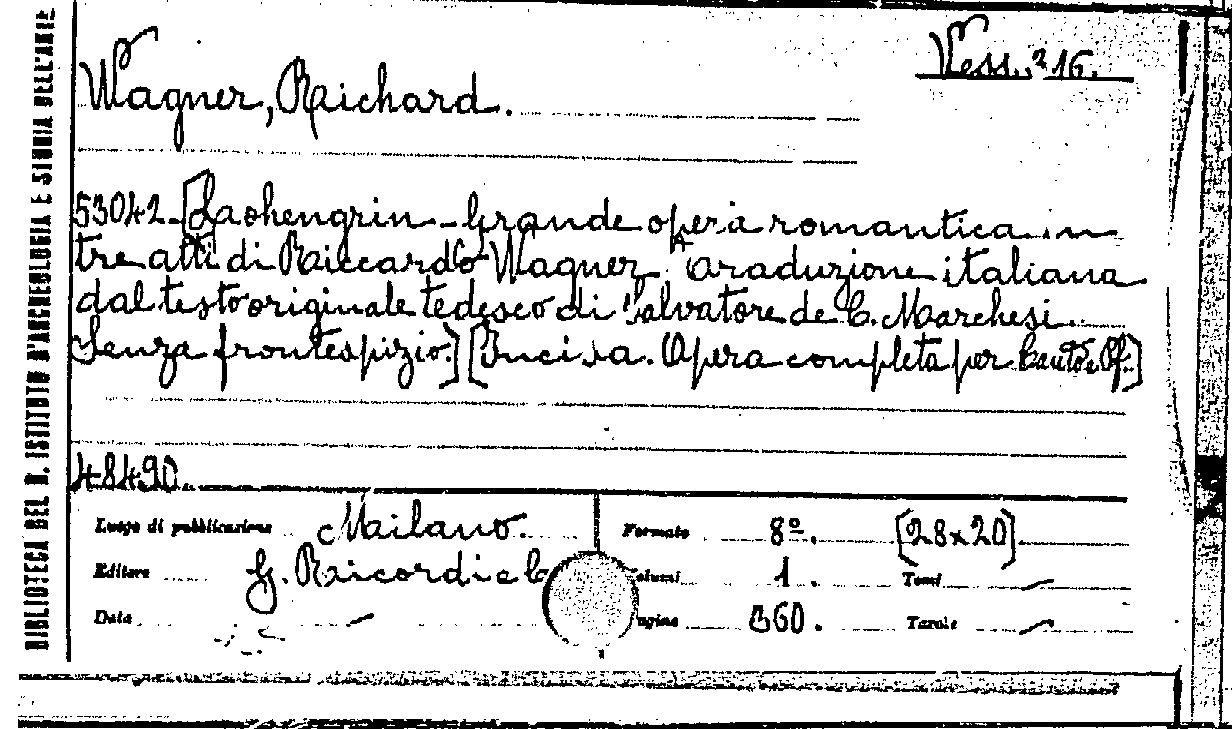 BIBLIOTECA DEL R. ISTITUTO D'ARCHEOLOGIA E STORIA DELL'ARTE
Vess. 216.
Wagner, Richard.
53042 [Lohengrin - Grande opera romantica in
tre atti di Riccardo Wagner Traduzione italiana
dal testo originale tedesco di Salvatore de C. Marchesi
Senza frontespizio.] [Incisa. Opera completa per Canto e Pf.]
48490
Luogo di pubblicazione Milano. Formato 8º. [28x20]
Editore G. Ricordi e Volumi 1. Tomi —
Data — Pagine 360. Tavole —